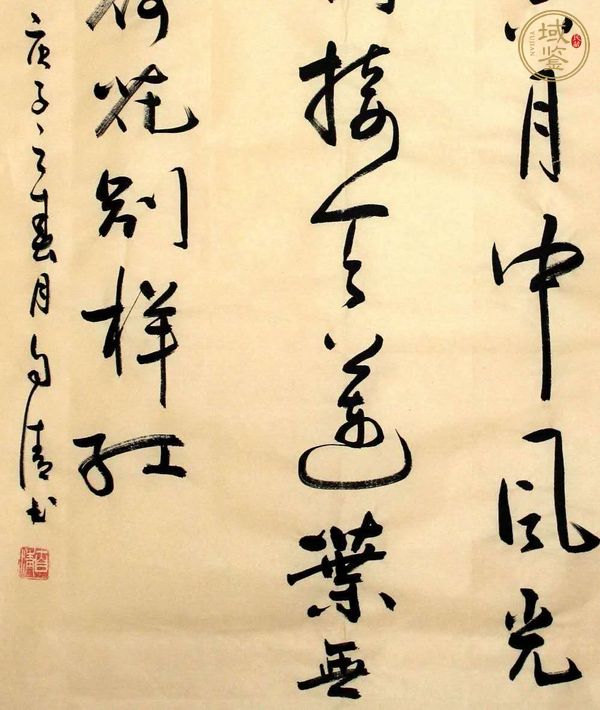 月中風光
接天蓮葉無
荷花别樣紅
庚子之春月自清書
域鉴
YUJIAN